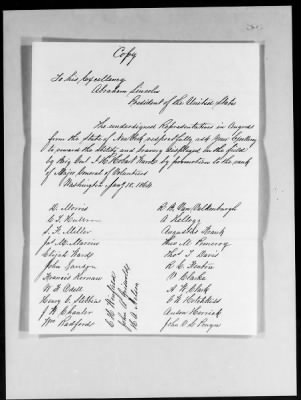 Copy
To his Excellency
Abraham Lincoln
President of the United States
The undersigned Representatives in Congress
from the State of New York, respectfully ask Your Excellency
to reward the ability and bravery displayed in the field
by Brig Genl J. H. Hobart Ward by promotion to the rank
of Major General of Volunteers
Washington Jany 18. 1864
O. Morris
C. T. Hulburd
S. F. Miller
Jas M. Marvin
Elijah Ward
John Ganson
Francis Kernan
W. H. Odell
Henry G. Stebbins
J. W. Chanler
Wm Radford
John
R. B. Van Valkenburgh
A Kellogg
Augustus Frank
Theo M. Pomeroy
Thos T. Davis
R. E. Fenton
Clarke
A. W. Clark
G. W. Hotchkiss
Anson Herrick
John V. L. Pruyn